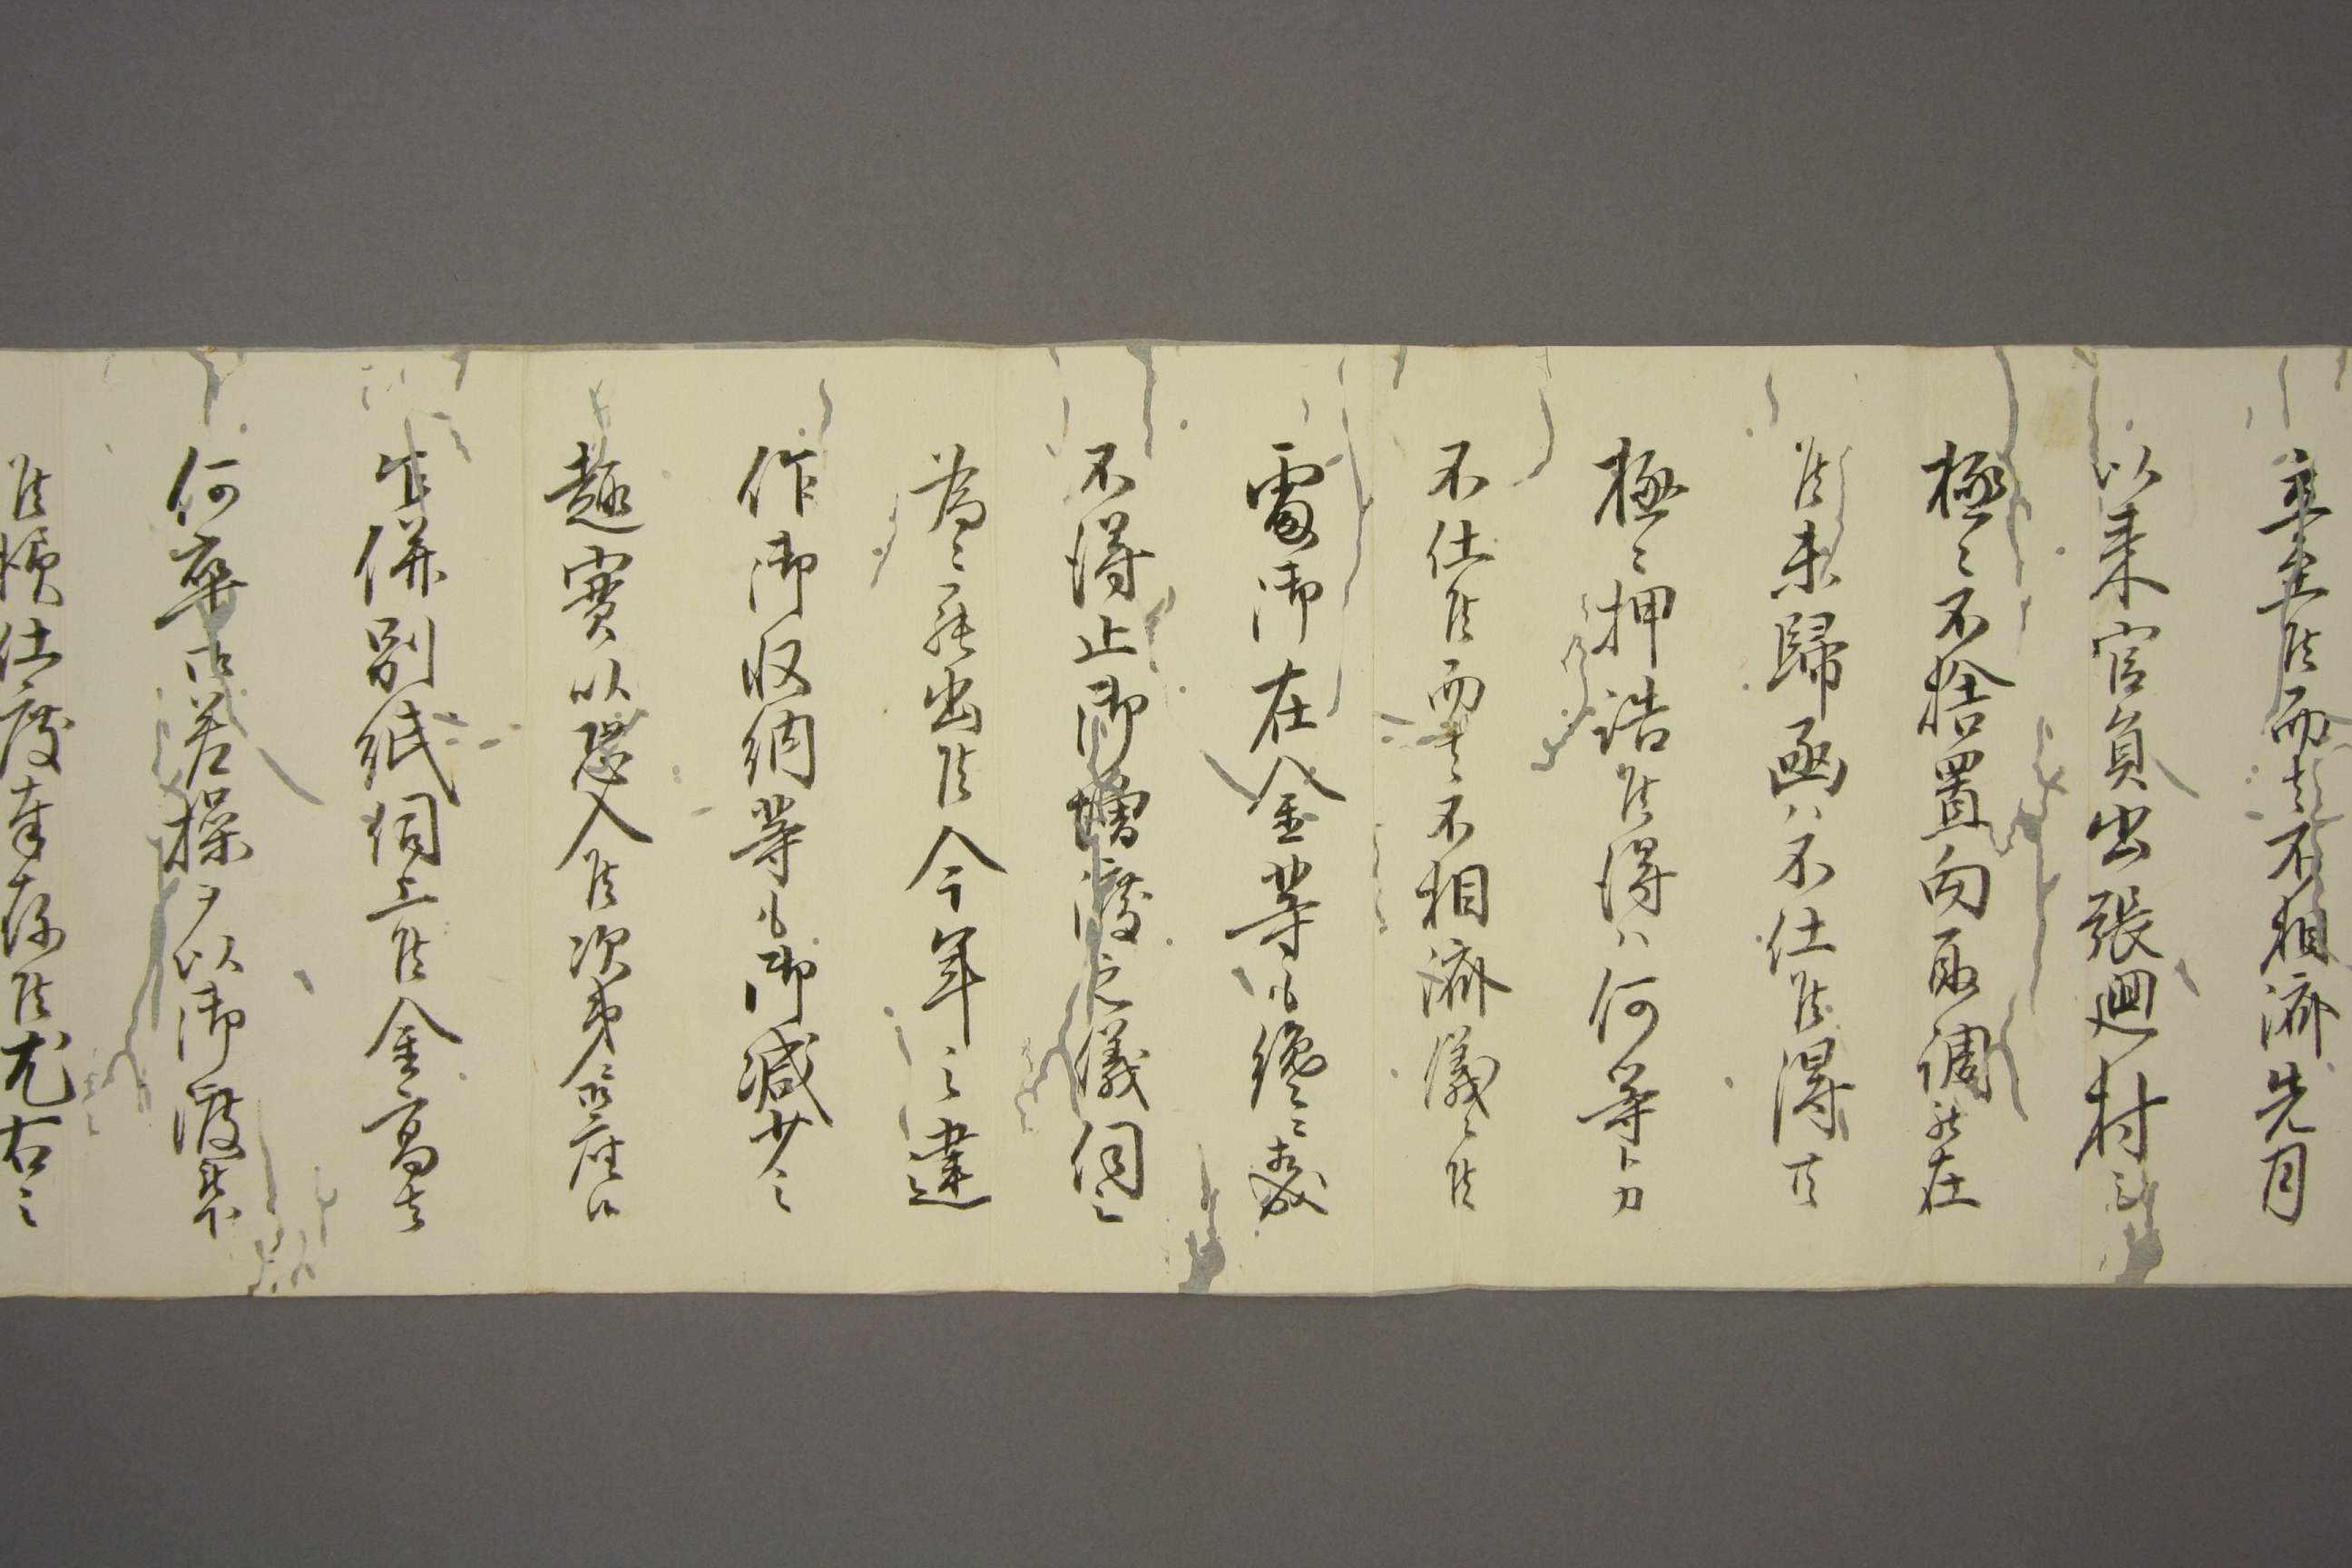 立至候而者不相濟先月
以来官員出張廻村ニ
極々不捨置向取調罷在
候未歸函ハ不仕候得共
極々押詰候得ハ何等ト力
不仕候而者不相濟儀ニ候
處御在金等も纔ニ
不得止御増渡之儀伺之
為ニ罷出候今年之違
作御収納等も御減少之
趣實以恐入候次第ニ御座候
乍併別紙伺上候金高者
何卒御差操ヲ以御渡被下
候様仕度奉存候尤右之